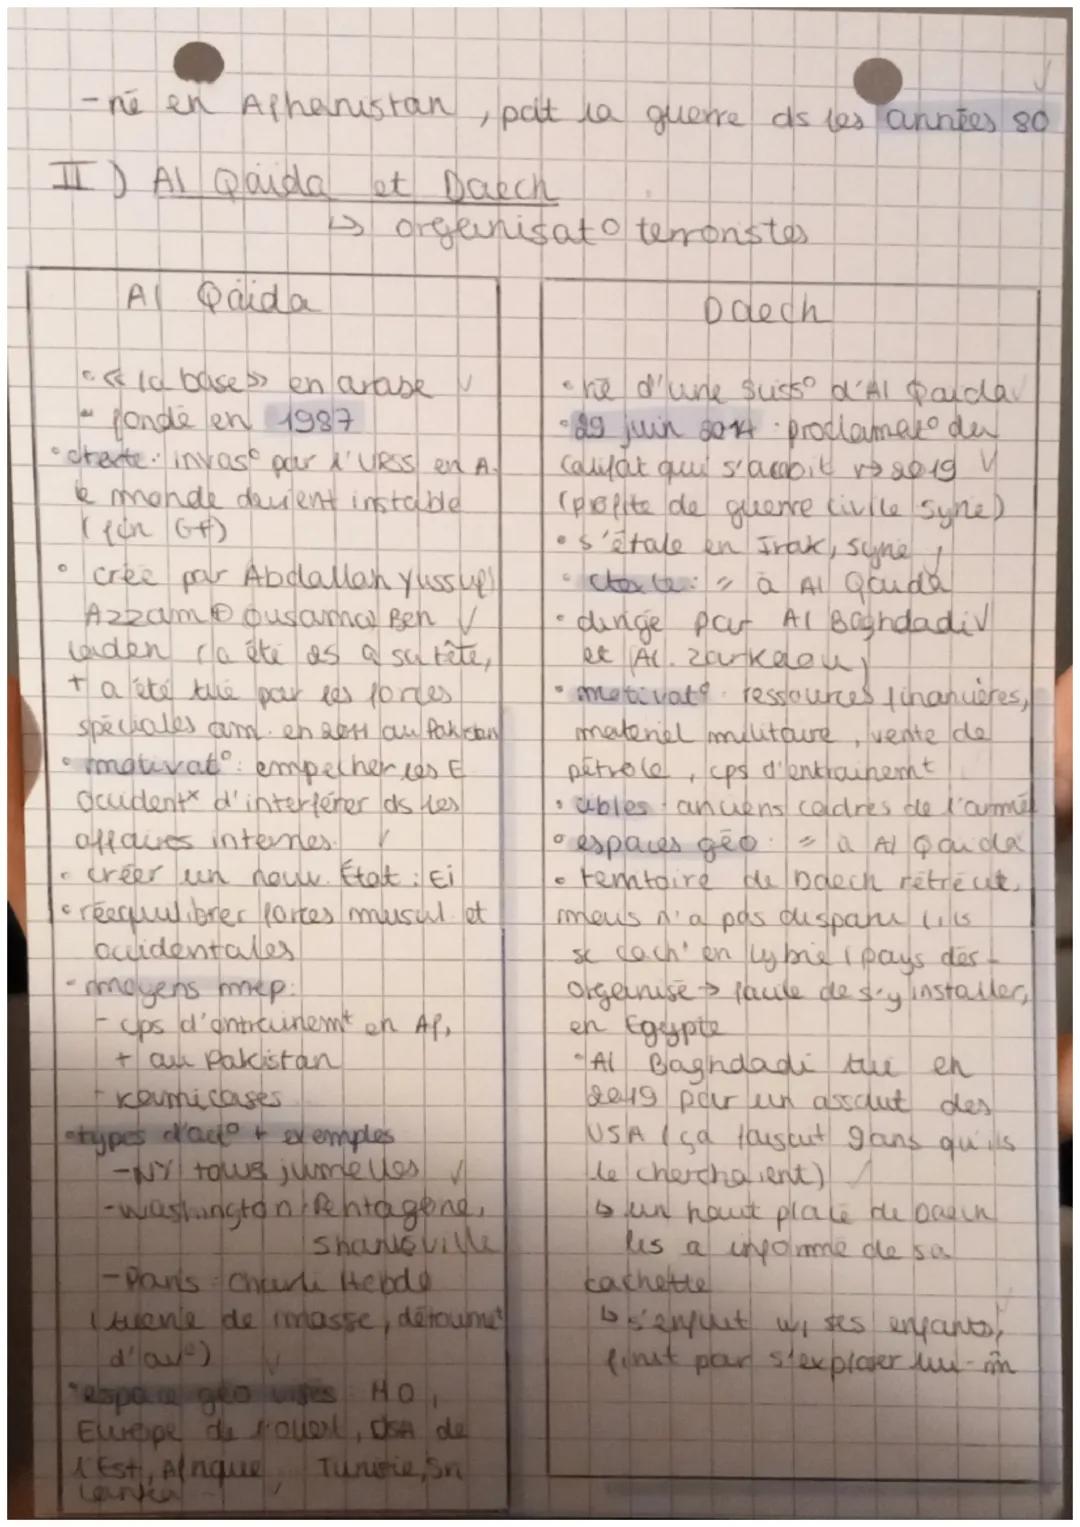 - né en Afhanistan, pdt la guerre ds les années 80
II) Al Qaïda et Daech
↳ organisat° terroristes
Al Qaïda
• « la base » en arabe
- fondé en 1987
• ctexte : invas° par l'URSS en A.
le monde devient instable
(fin GF)
• créé par Abdallah Yussuf
Azzam ⊕ Ousama Ben
Laden (a été ds à sa tête,
+ a été tué par les forces
spéciales am. en 2011 au Pakistan
• motivat° : empêcher les E
occidentx d'interférer ds les
affaires internes
• créer un nouv. État : Ei
• rééquilibrer forces musul. et
occidentales
- moyens mep :
- cps d'entrainemt en Af,
+ au Pakistan
- kamicases
• types d'act° + exemples
- NY tours jumelles
- Washington Pentagone,
Shanksville
- Paris Charli Hebdo
(tuerie de masse, détournemt
d'av°)
• espace géo visés MO,
Europe de l'ouest, USA de
l'Est, Afrique, Tunisie, Sri
Lanka
Daech
• né d'une suiss° d'Al Qaida
• 29 juin 2014 : proclamat° du
califat qui s'aboit → 2019
(profite de guerre civile Syrie)
• s'étale en Irak, Syrie
• ctexte : = à Al Qaida
• dirigé par Al Baghdadi
et Al. Zarkaou
• motivat° ressources financières,
matériel militaire, vente de
pétrole, cps d'entrainemt
• cibles : anciens cadres de l'armée
• espaces géo : = à Al Qaida
• territoire de Daech rétrécit,
mais n'a pas disparu (ils
se cach' en Lybie (pays dés-
organisé → facile de s'y installer,
en Egypte
• Al Baghdadi tué en
2019 par un assaut des
USA (ça faisait 9ans qu'ils
le cherchaient)
↳ un haut placé de Daech
les a informé de sa
cachette
↳ s'enfuit w/ ses enfants,
finit par s'exploser lui-m̂